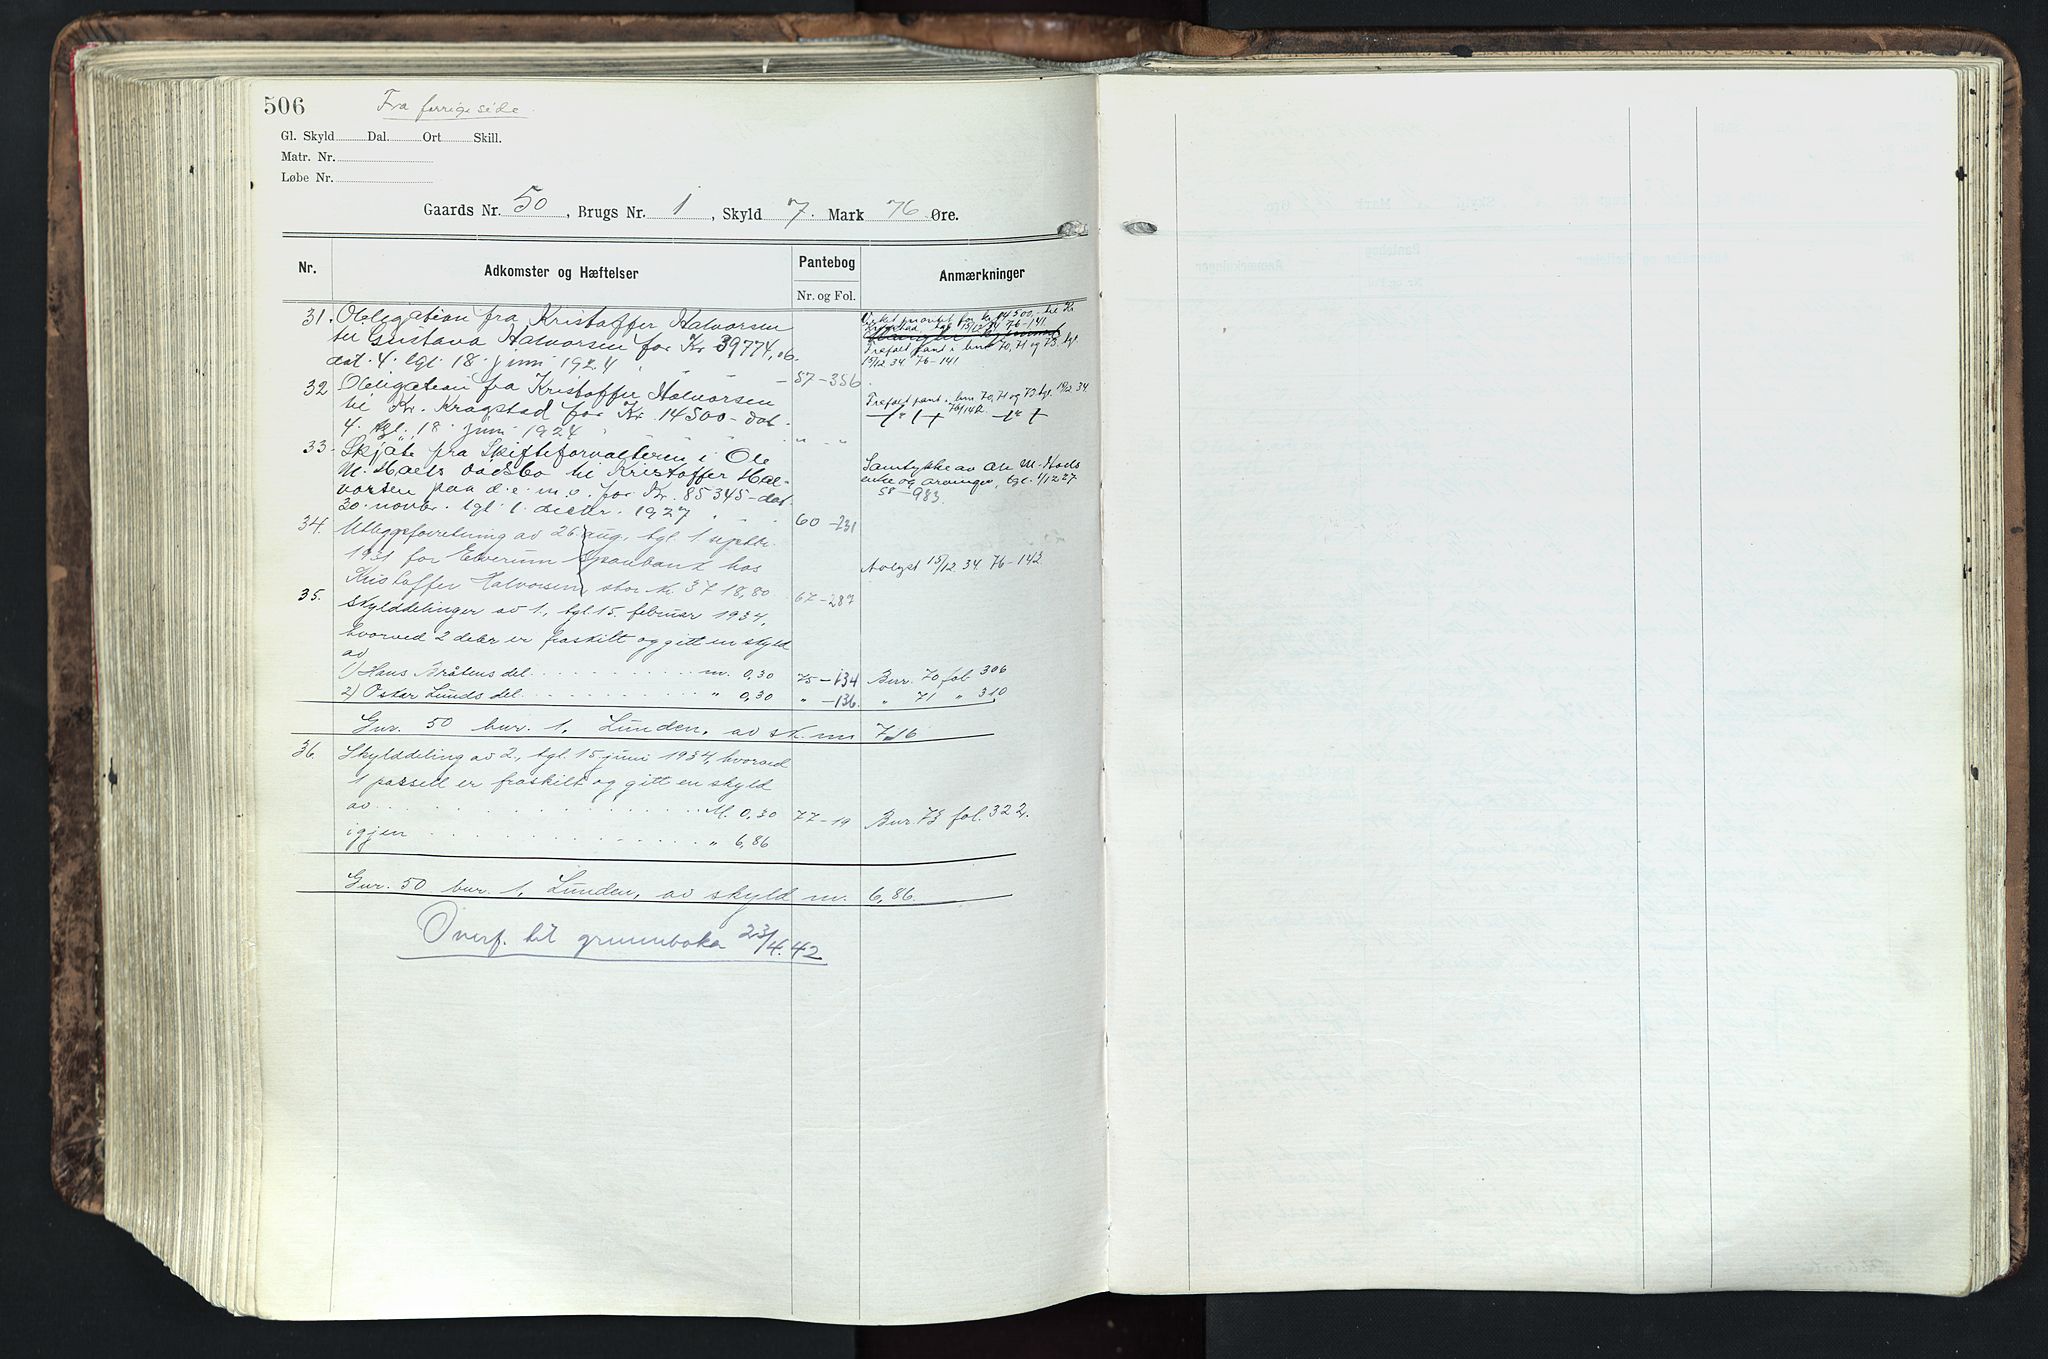 506 Fra forrige side
Gl. Skyld Dal. Ort Skill.
Matr. Nr.
Løbe Nr.
Gaards Nr. 50, Brugs Nr. 1, Skyld 7 Mark 76 Øre.
Nr. Adkomster og Hæftelser Pantebog Anmærkninger
Nr. og Fol.
31. Obligation fra Kristoffer Halvorsen
til Gustava Halvorsen for Kr 39774,06
dat. 4. tgl. 18. juni 1924 - 57-356
Veket prioritet for kr. 14500,- til Kr.
Kragstad, tgl 15/12 34 76-141
Trefalt pant i bnr 70, 71 og 73 tgl
15/12 34 76-141
32 Obligation fra Kristoffer Halvorsen
til Kr. Kragstad for Kr. 14500- dat.
4. tgl. 18. juni 1924 " - "
Trefalt pant i bnr 70, 71 og 73 tgl. 15/12 34
76/142
33. Skjøte fra Skifteforvalteren i Ole
M. Hoels dødsbo til Kristoffer Hal-
vorsen paa d. e. m. o. for Kr. 85345- dat.
30. novbr. tgl. 1. decbr. 1927 60-231
Samtykke av Ole M. Hoels
enke og arvinger, tgl. 1/12 27
58-983
34. Utleggsforretning av 26 aug., tgl 1 septbr.
1931 for Elverum Sparebank hos
Kristoffer Halvorsen, stor kr. 3718,80 67-287
Avlyst 15/12. 34. 76-142
35. Skylddelinger av 1., tgl. 15. februar 1934,
hvorved 2 deler er fraskilt og gitt en skyld
av
1) Hans Bråtens del m. 0,30 75-134 Bnr. 70 fol 306
2) Oskar Lunds del " 0,30 " -136. " 71 " 310
Gnr. 50 bnr. 1, Lunden, av sk. mrk 7,16
36. Skylddeling av 2., tgl. 15 juni 1934, hvorved
1 parsell er fraskilt og gitt en skyld
av M. 0,30 77-19 Bnr. 73 fol. 322.
igjen " 6,86
Gnr. 50 bnr. 1, Lunden, av skyld m. 6,86.
Overf. til grunnboka 23/4.42